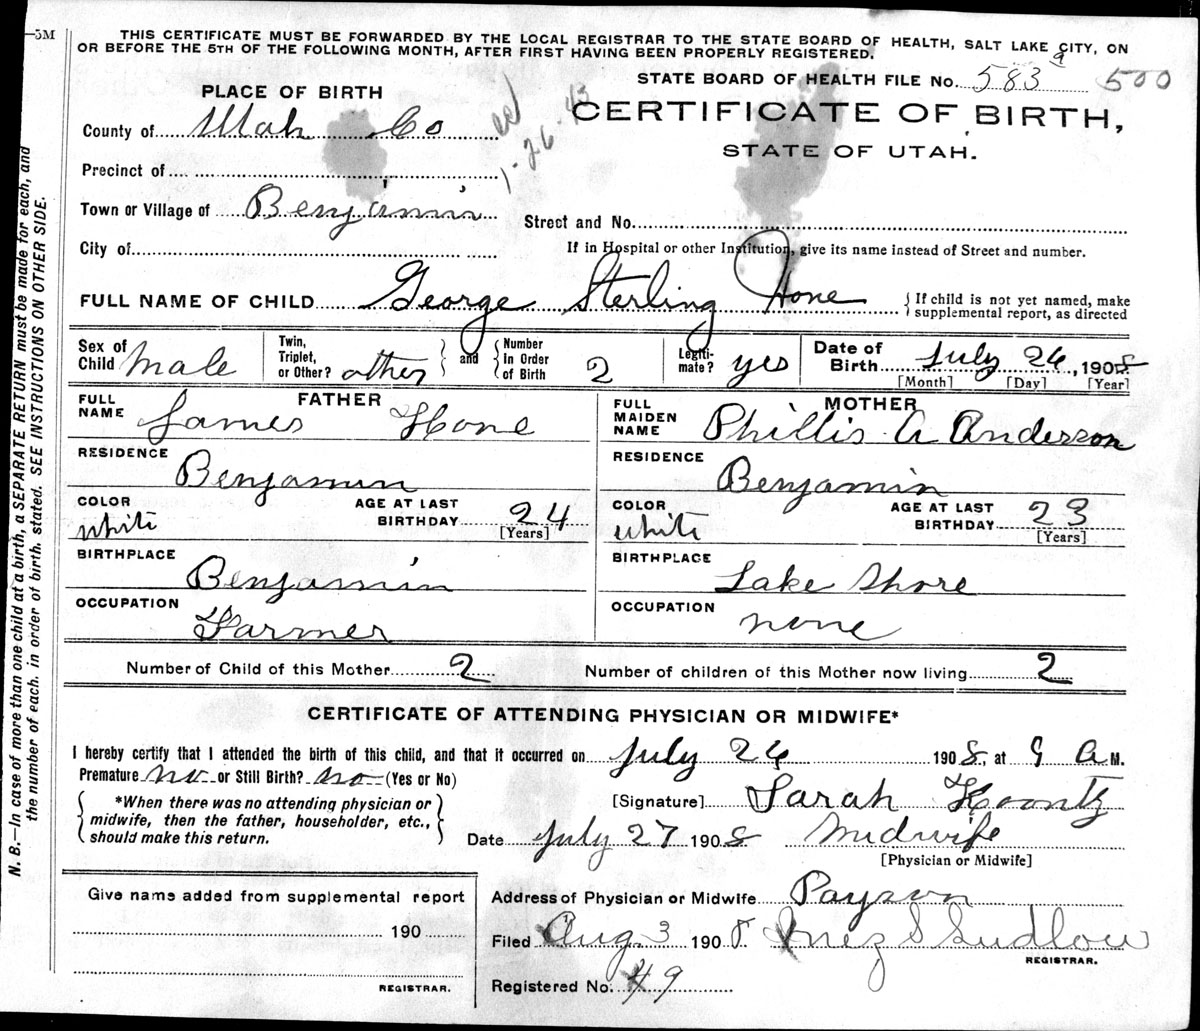 —5M
THIS CERTIFICATE MUST BE FORWARDED BY THE LOCAL REGISTRAR TO THE STATE BOARD OF HEALTH, SALT LAKE CITY, ON
OR BEFORE THE 5TH OF THE FOLLOWING MONTH, AFTER FIRST HAVING BEEN PROPERLY REGISTERED.
STATE BOARD OF HEALTH FILE No. 583 a 500
PLACE OF BIRTH
CERTIFICATE OF BIRTH,
STATE OF UTAH.
County of Utah Co
1-26-43
Precinct of
Town or Village of Benjamin
Street and No.
City of
If in Hospital or other Institution, give its name instead of Street and number.
FULL NAME OF CHILD George Sterling Hone
{ If child is not yet named, make
supplemental report, as directed
Sex of Child Male
Twin, Triplet, or Other? other } and { Number In Order of Birth 2
Legiti-mate? yes
Date of Birth July 26, 1908
[Month] [Day] [Year]
FATHER
FULL NAME James Hone
MOTHER
FULL MAIDEN NAME Phillis A Anderson
RESIDENCE Benjamin
RESIDENCE Benjamin
COLOR white AGE AT LAST BIRTHDAY 24 [Years]
COLOR white AGE AT LAST BIRTHDAY 23 [Years]
BIRTHPLACE Benjamin
BIRTHPLACE Lake Shore
OCCUPATION Farmer
OCCUPATION none
Number of Child of this Mother 2 Number of children of this Mother now living 2
CERTIFICATE OF ATTENDING PHYSICIAN OR MIDWIFE*
I hereby certify that I attended the birth of this child, and that it occurred on July 26 1908, at 9 A M.
Premature no or Still Birth? no (Yes or No)
{ *When there was no attending physician or
midwife, then the father, householder, etc.,
should make this return. }
[Signature] Sarah Koontz
Date July 27 1908 Midwife
[Physician or Midwife]
Give name added from supplemental report
190
REGISTRAR.
Address of Physician or Midwife Payson
Filed Aug 3 1908 Inez S Ludlow
REGISTRAR.
Registered No. 49
N. B.—In case of more than one child at a birth, a SEPARATE RETURN must be made for each, and
the number of each, in order of birth, stated. SEE INSTRUCTIONS ON OTHER SIDE.